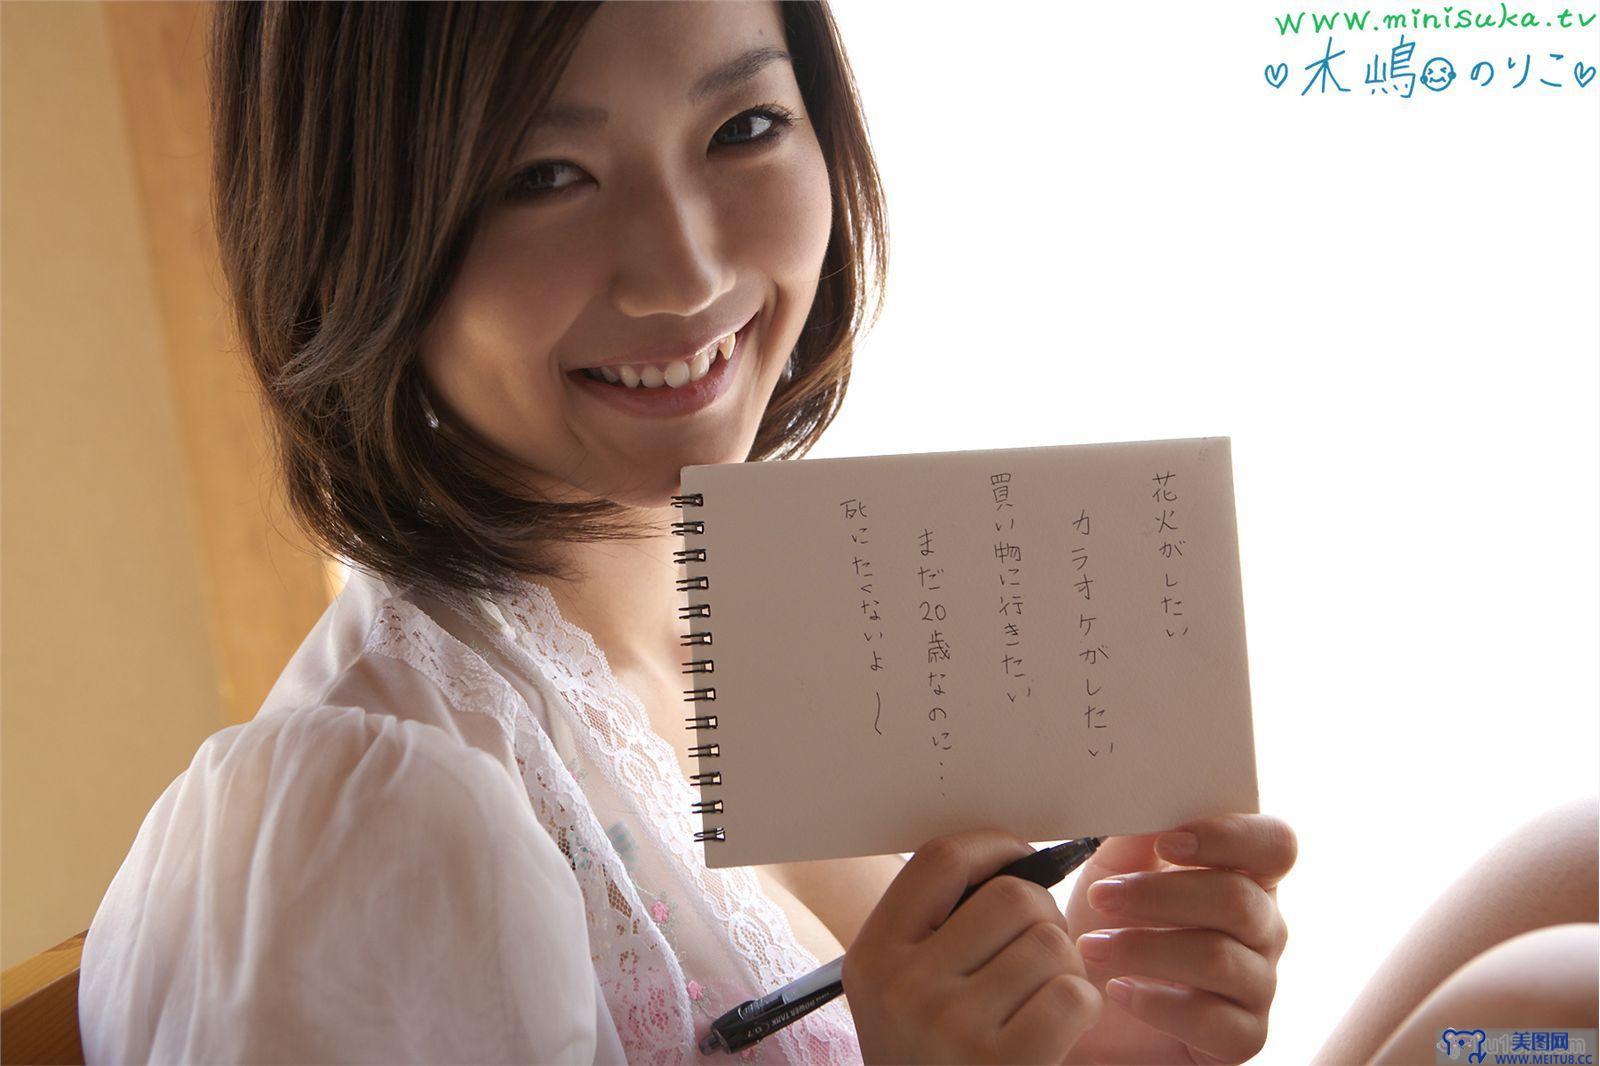 www.minisuka.tv
♡木嶋のりこ♡
花火がしたい
カラオケがしたい
買い物に行きたい
まだ20歳なのに...
死にたくないよ〜
POWER TANK 0.7
美图网
WWW.MEITU8.CC